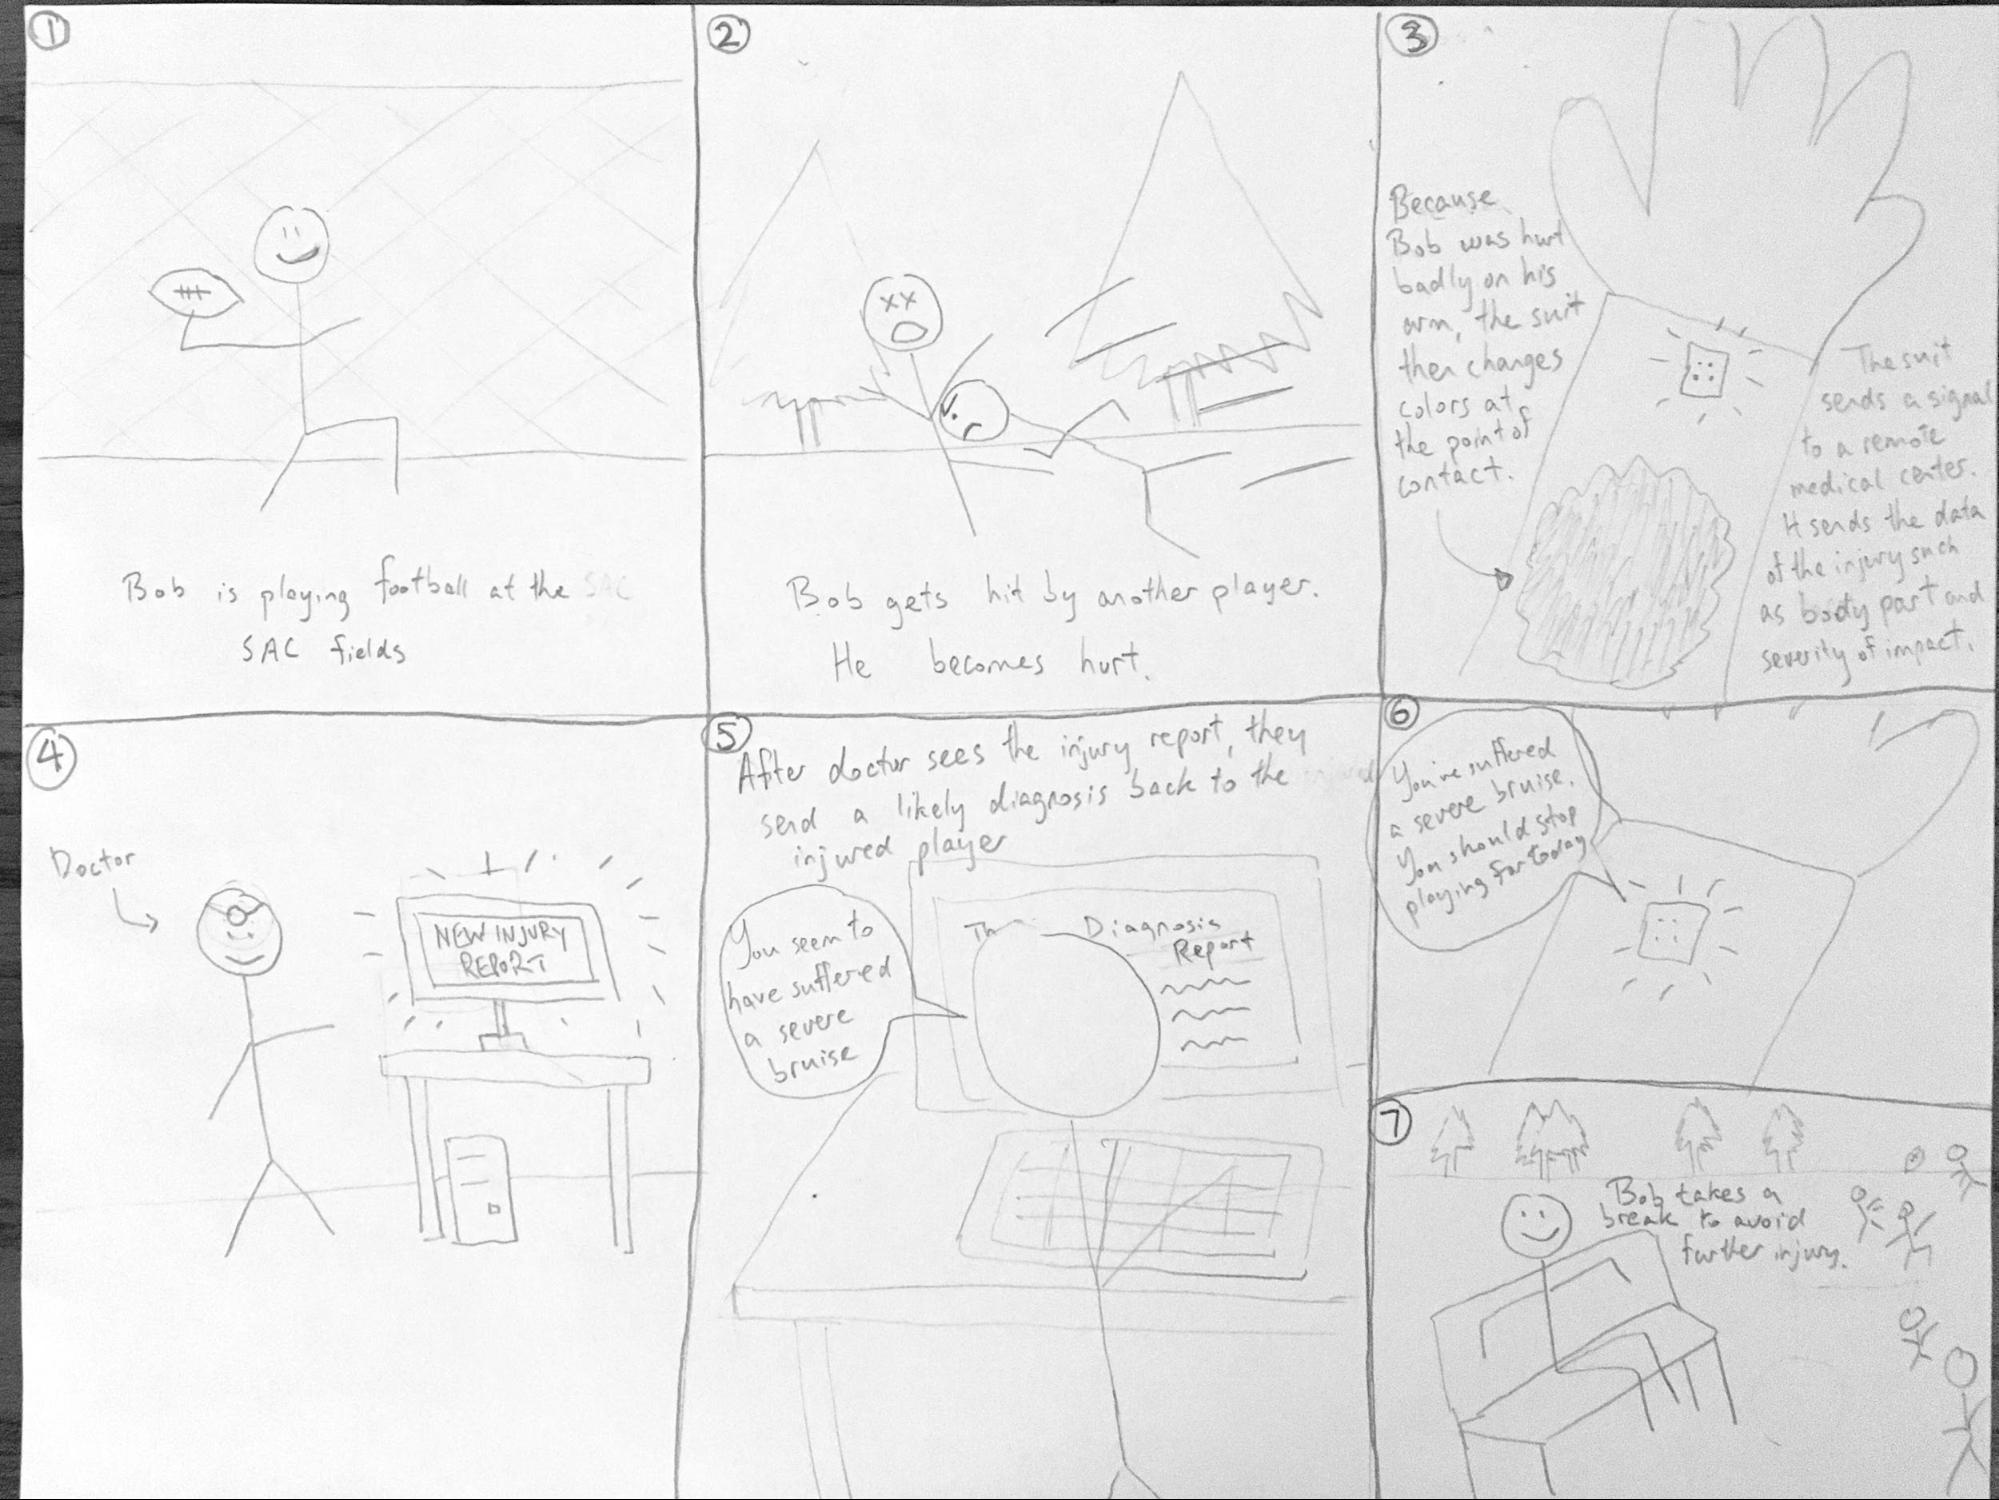 1
Bob is playing football at the SAC
SAC fields
2
Bob gets hit by another player.
He becomes hurt.
3
Because
Bob was hurt
badly on his
arm, the suit
then changes
colors at
the point of
contact.
The suit
sends a signal
to a remote
medical center.
It sends the data
of the injury such
as body part and
severity of impact.
4
Doctor
NEW INJURY
REPORT
5
After doctor sees the injury report, they
send a likely diagnosis back to the injured
injured player
You seem to
have suffered
a severe
bruise
Th
Diagnosis
Report
6
You've suffered
a severe bruise.
You should stop
playing for today
7
Bob takes a
break to avoid
further injury.